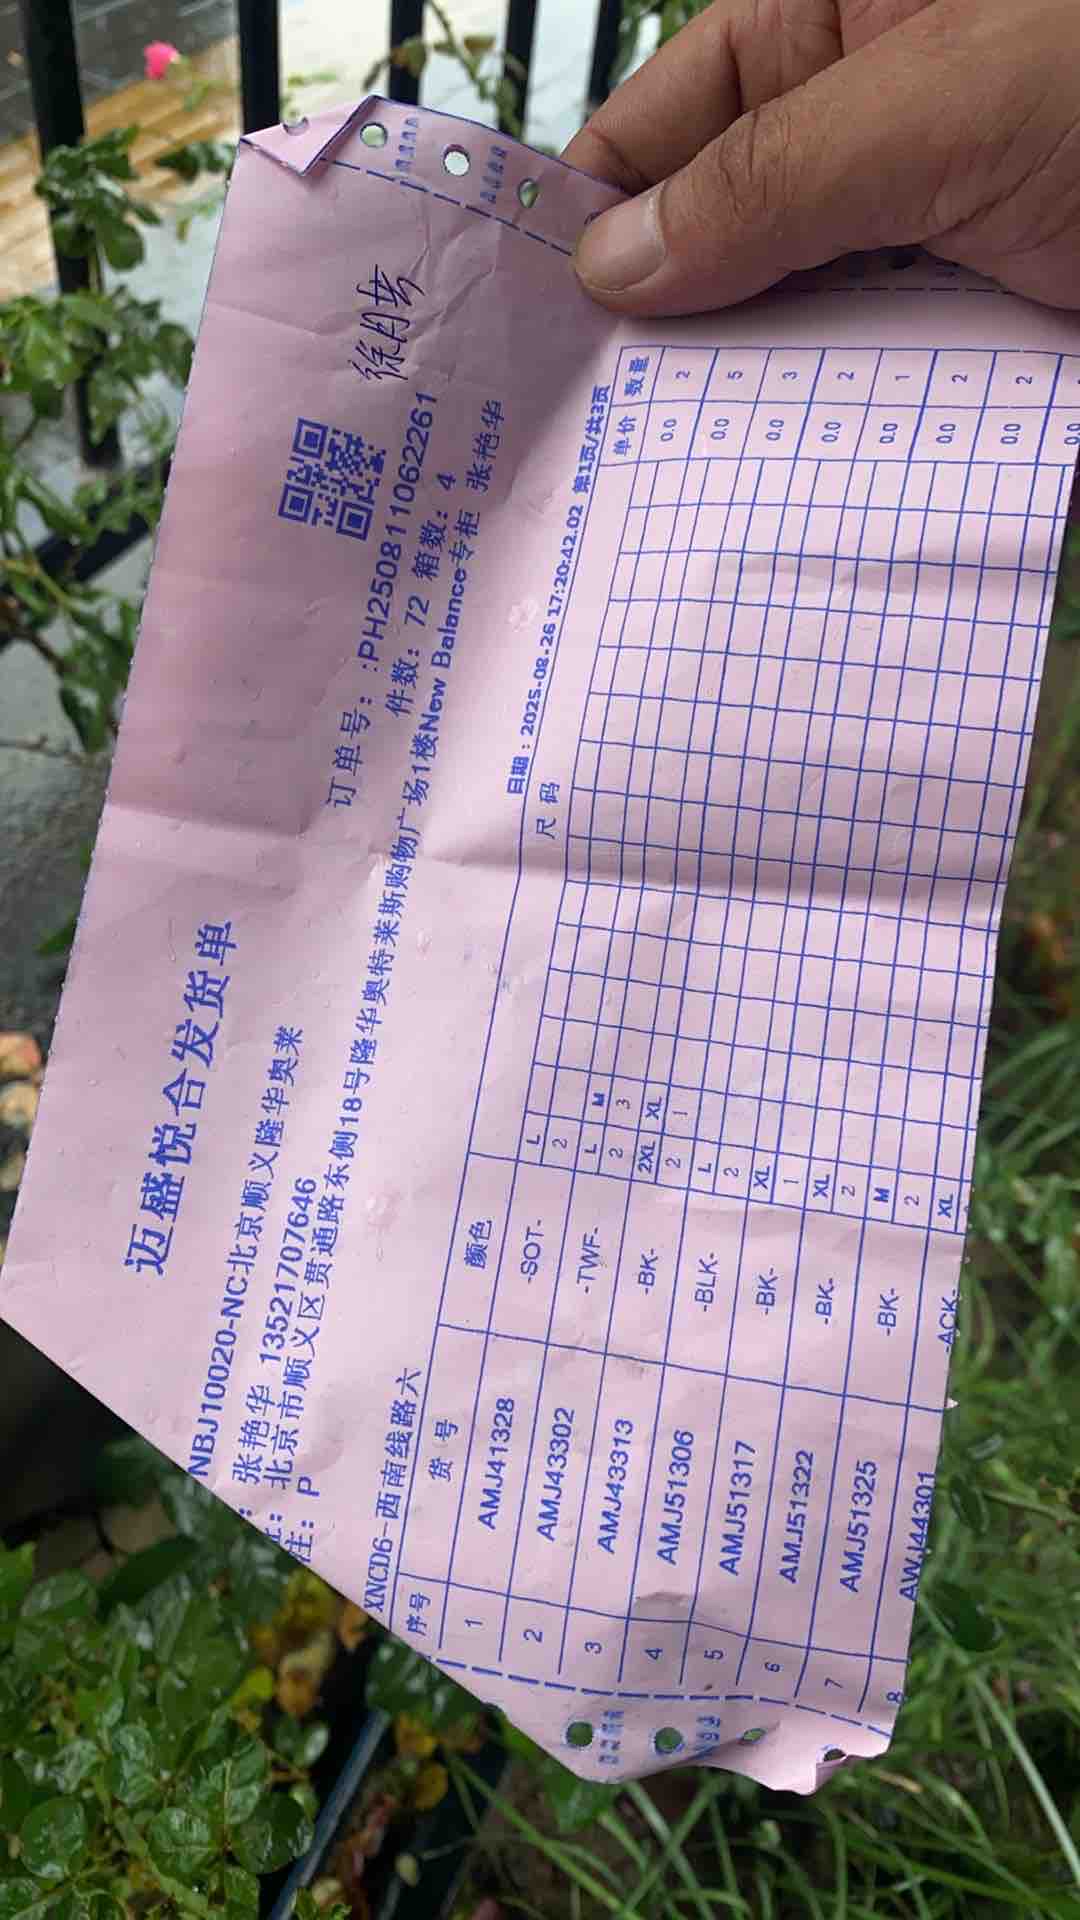 迈盛悦合发货单
NBJ10020-NC北京顺义隆华奥莱
订单号: :PH25081106​2261
徐月
: 张艳华 13521707646
件数: 72 箱数: 4
址: 北京市顺义区贯通路东侧18号隆华奥特莱斯购物广场1楼New Balance专柜 张艳华
注: P
XNCD6-西南线路六
日期: 2025-08-26 17:20:42.02 第1页/共3页
序号 货号 颜色 尺码 单价 数量
1 AMJ41328 -SOT- L 0.0 2
2
2 AMJ43302 -TWF- L M 0.0 5
2 3
3 AMJ43313 -BK- 2XL XL 0.0 3
2 1
4 AMJ51306 -BLK- L 0.0 2
2
5 AMJ51317 -BK- XL 0.0 1
1
6 AMJ51322 -BK- XL 0.0 2
2
7 AMJ51325 -BK- M 0.0 2
2
8 AWJ44301 -ACK- XL 0.0